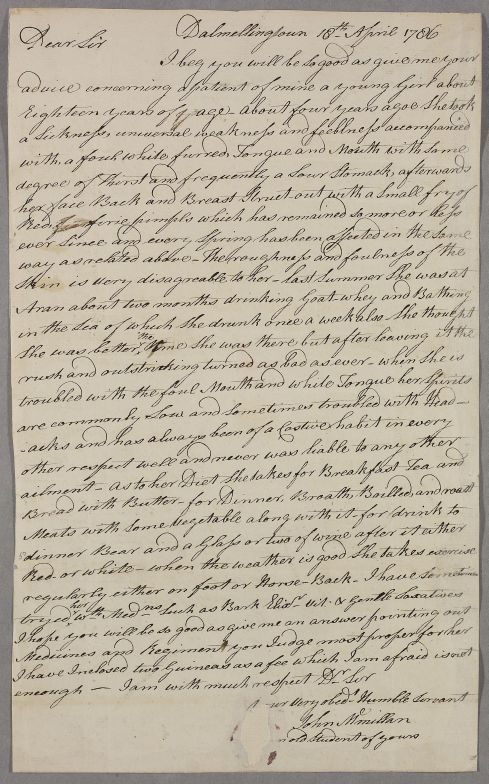 Dalmellingtoun 18th. April 1786
Dear Sir
I beg you will be so good as give me your
advice concerning a patient of mine a young Girl about
Eighteen years of age - about four years agoe She took
a Sickness, universal weakness and feebleness accompanied
with a foul white furred Tongue and Mouth with some
degree of Thirst and frequently a Sour Stomack, afterwards
her face Back and Breast Struct out with a Small fry of
Red pimpls which has remained so more or less
ever Since and every Spring has been affected in the Same
way as related above - The roughness and foulness of the
Skin is very disagreable to her - last Summer She was at
Aran about two months drinking Goat-whey and Bathing
in the Sea of which She drunk once a week also - She thought
She was better the time She was there but after leaving it the
rush and outstricking turned as bad as ever - when She is
troubled with the foul Mouth and white Tongue her Spirits
are commonly Low and Sometimes troubled with Head-
-acks and has always been of a Costive habit in every
other respect well and never was liable to any other
ailment - As to her Diet She takes for Breakfast Tea and
Bread with Butter - for Dinner, Broath, Boilled and roast
Meats with Some vegetable along with it - for drink to
dinner Bear and a Glass or two of wine after it either
Red or white - when the weather is good She takes exercise
regularly either on foot or Horse-Back - I have Sometimes
tryed her wth Medns Such as Bark Elixr Vit. & Gentle Laxatives
I hope you will be so good as give me an answer pointing out
Medicines and Regimen you Judge most proper for her
I have Inclosed two Guineas as a fee which I am afraid is not
enough - I am with much respect Dr Sir
your very obedt Humble Servant
John Mcmillan
old Student of yours